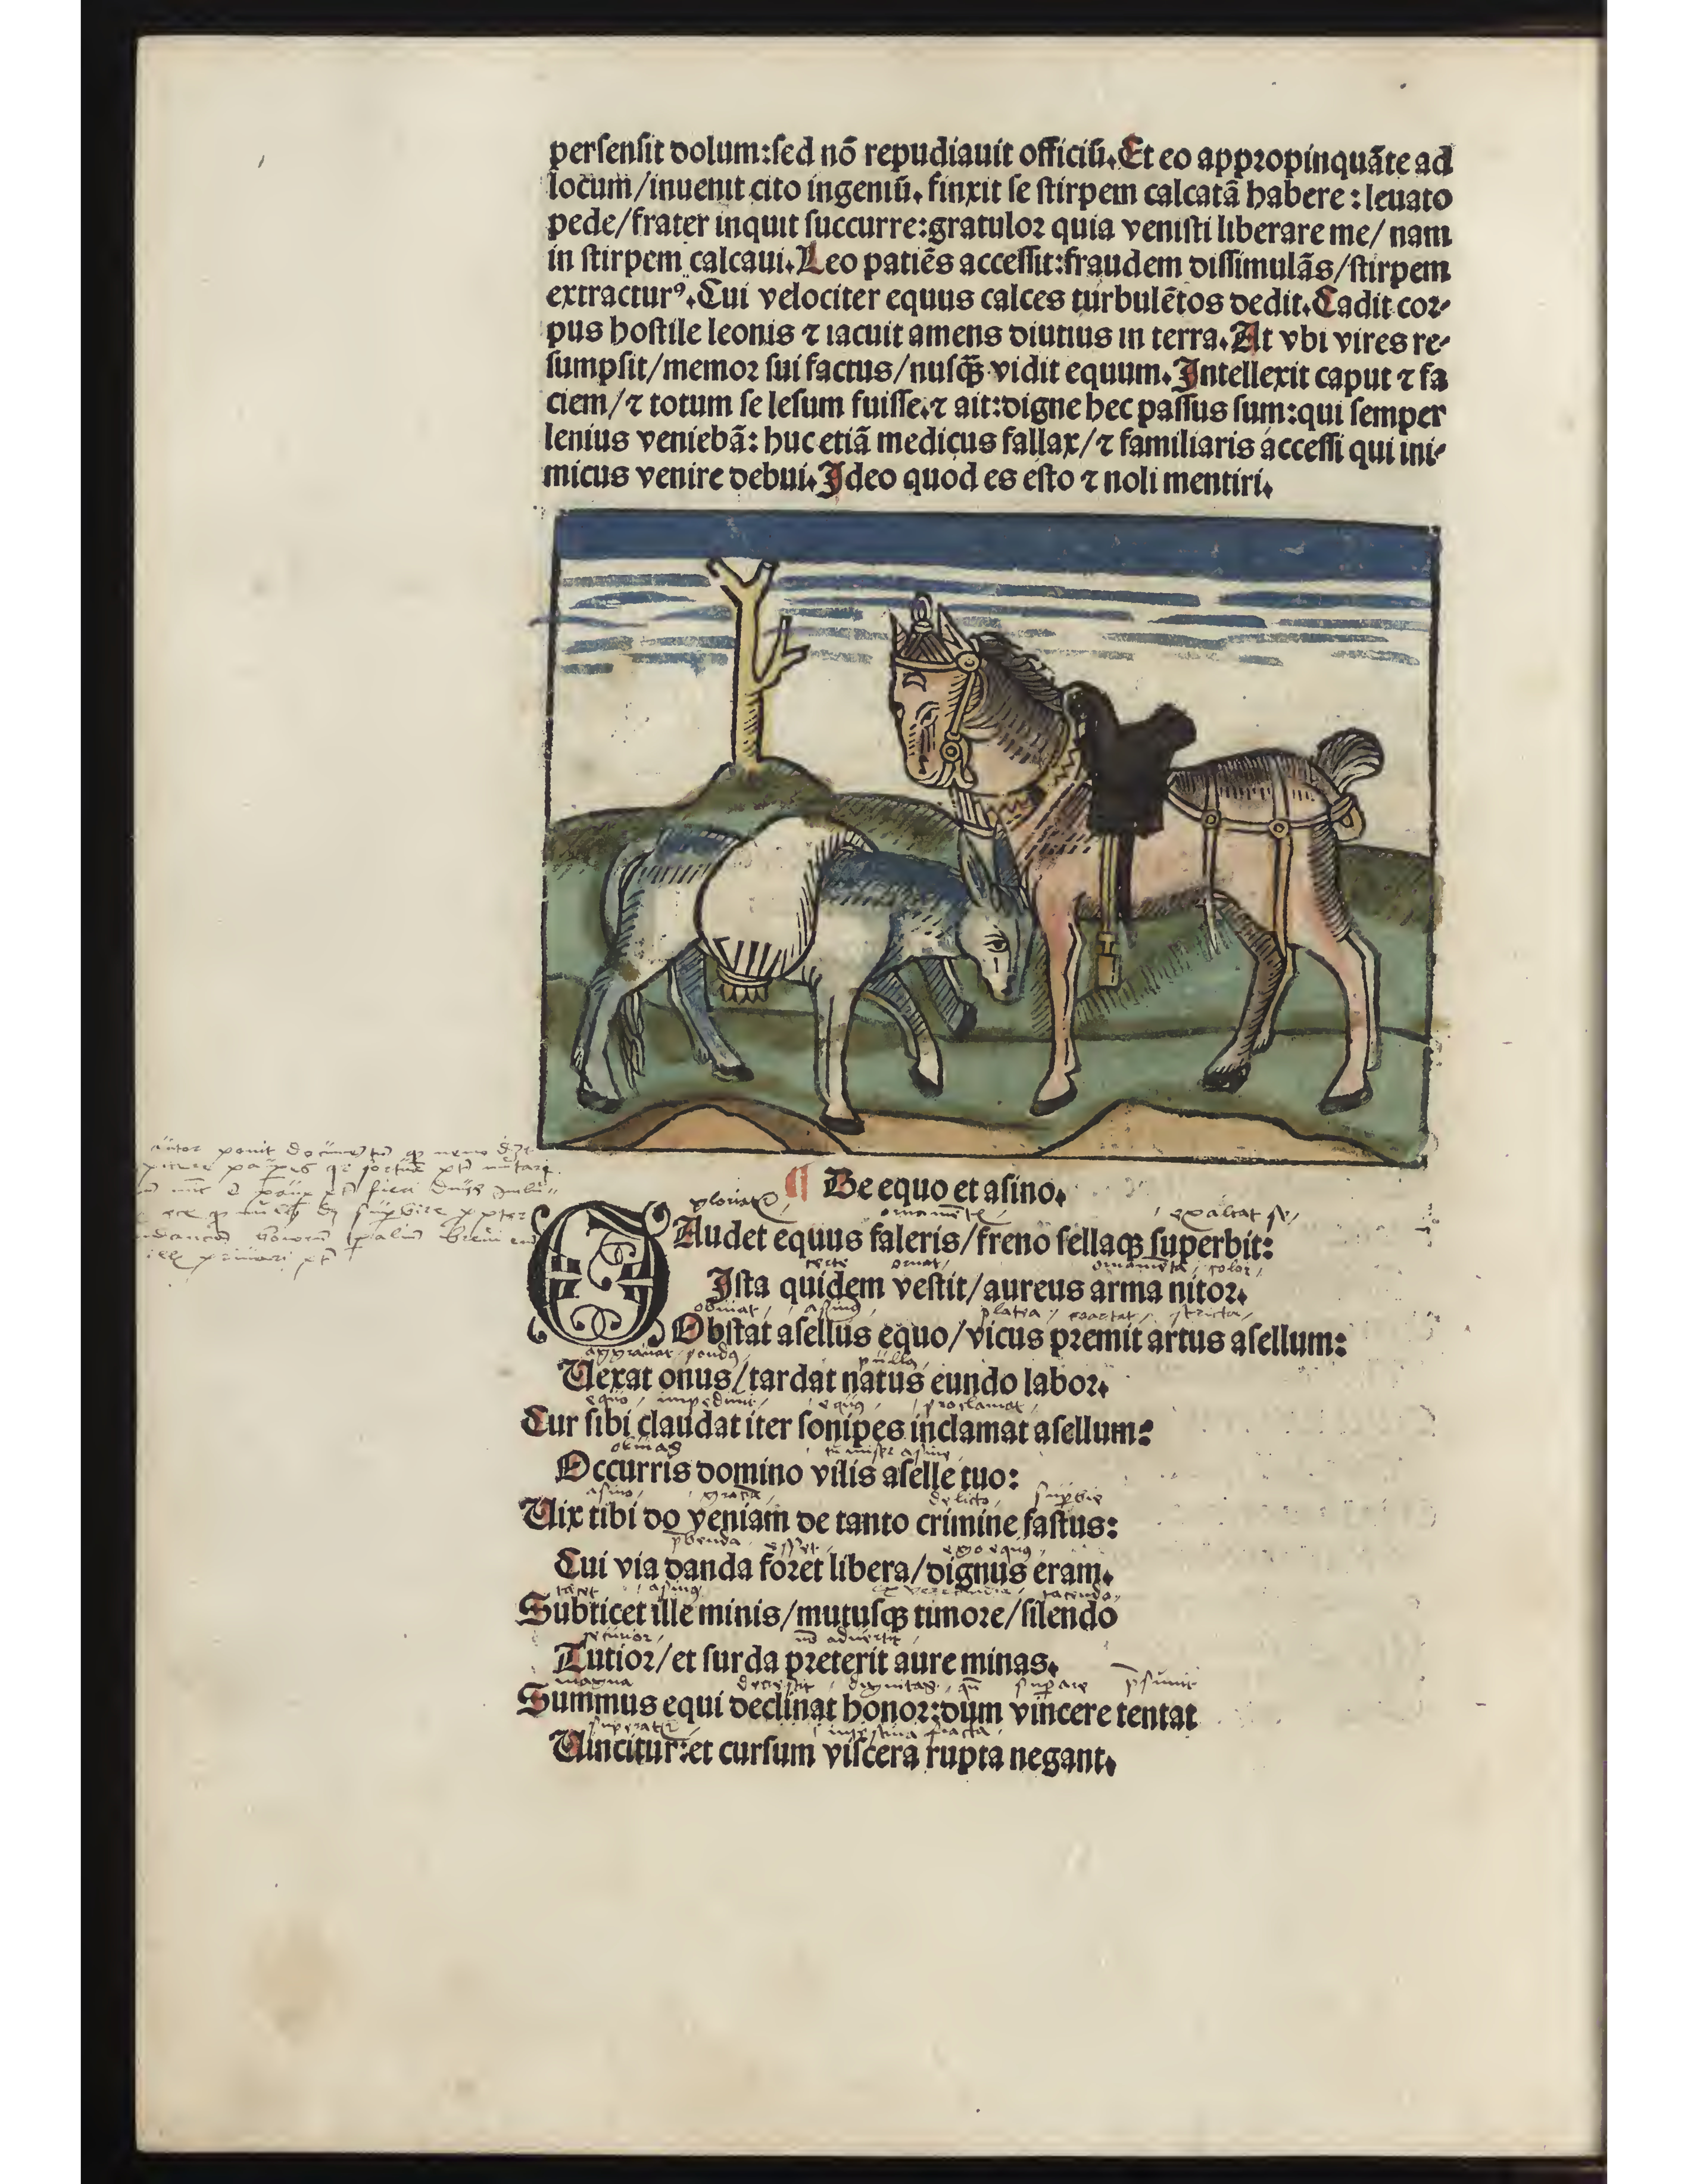 persensit dolum:sed nõ repudiauit officiũ.Et eo appropinquãte ad
locum/inuenit cito ingeniũ. finxit se stirpem calcatã habere : leuato
pede/frater inquit succurre:gratulor quia venisti liberare me/ nam
in stirpem calcaui.Leo patiẽs accessit:fraudem dissimulãs/stirpem
extracturꝰ.Cui velociter equus calces turbulẽtos dedit.Cadit cor-
pus hostile leonis ⁊ iacuit amens diutius in terra.At vbi vires re-
sumpsit/memor sui factus/nusq̃ꝫ vidit equum.Intellexit caput ⁊ fa
ciem/⁊ totum se lesum fuisse.⁊ ait:digne hec passus sum:qui semper
lenius veniebã: huc etiã medicus fallax/⁊ familiaris accessi qui ini-
micus venire debui.Ideo quod es esto ⁊ noli mentiri.
¶ De equo et asino.
ornamẽt exaltat se
GAudet equus faleris/freno sellaqꝫ superbit:
certe ornat color
Ista quidem vestit/aureus arma nitor.
obuiat platea coactat stricta
Obstat asellus equo/vicus premit artus asellum:
Uexat onus/tardat natus eundo labor.
equo impediunt equꝰ proclamat
Cur sibi claudat iter sonipes inclamat asellum:
obuias
Occurris domino vilis aselle tuo:
asino delicto superbie
Uix tibi do veniam de tanto crimine fastus:
esset ego equꝰ
Cui via danda foret libera/dignus eram.
tacet asinꝰ tacendo
Subticet ille minis/mutusqꝫ timore/silendo
securior
Tutior/et surda preterit aure minas.
magna
Summus equi declinat honor:dum vincere tentat
intestina fracta
Uincitur:et cursum viscera rupta negant.